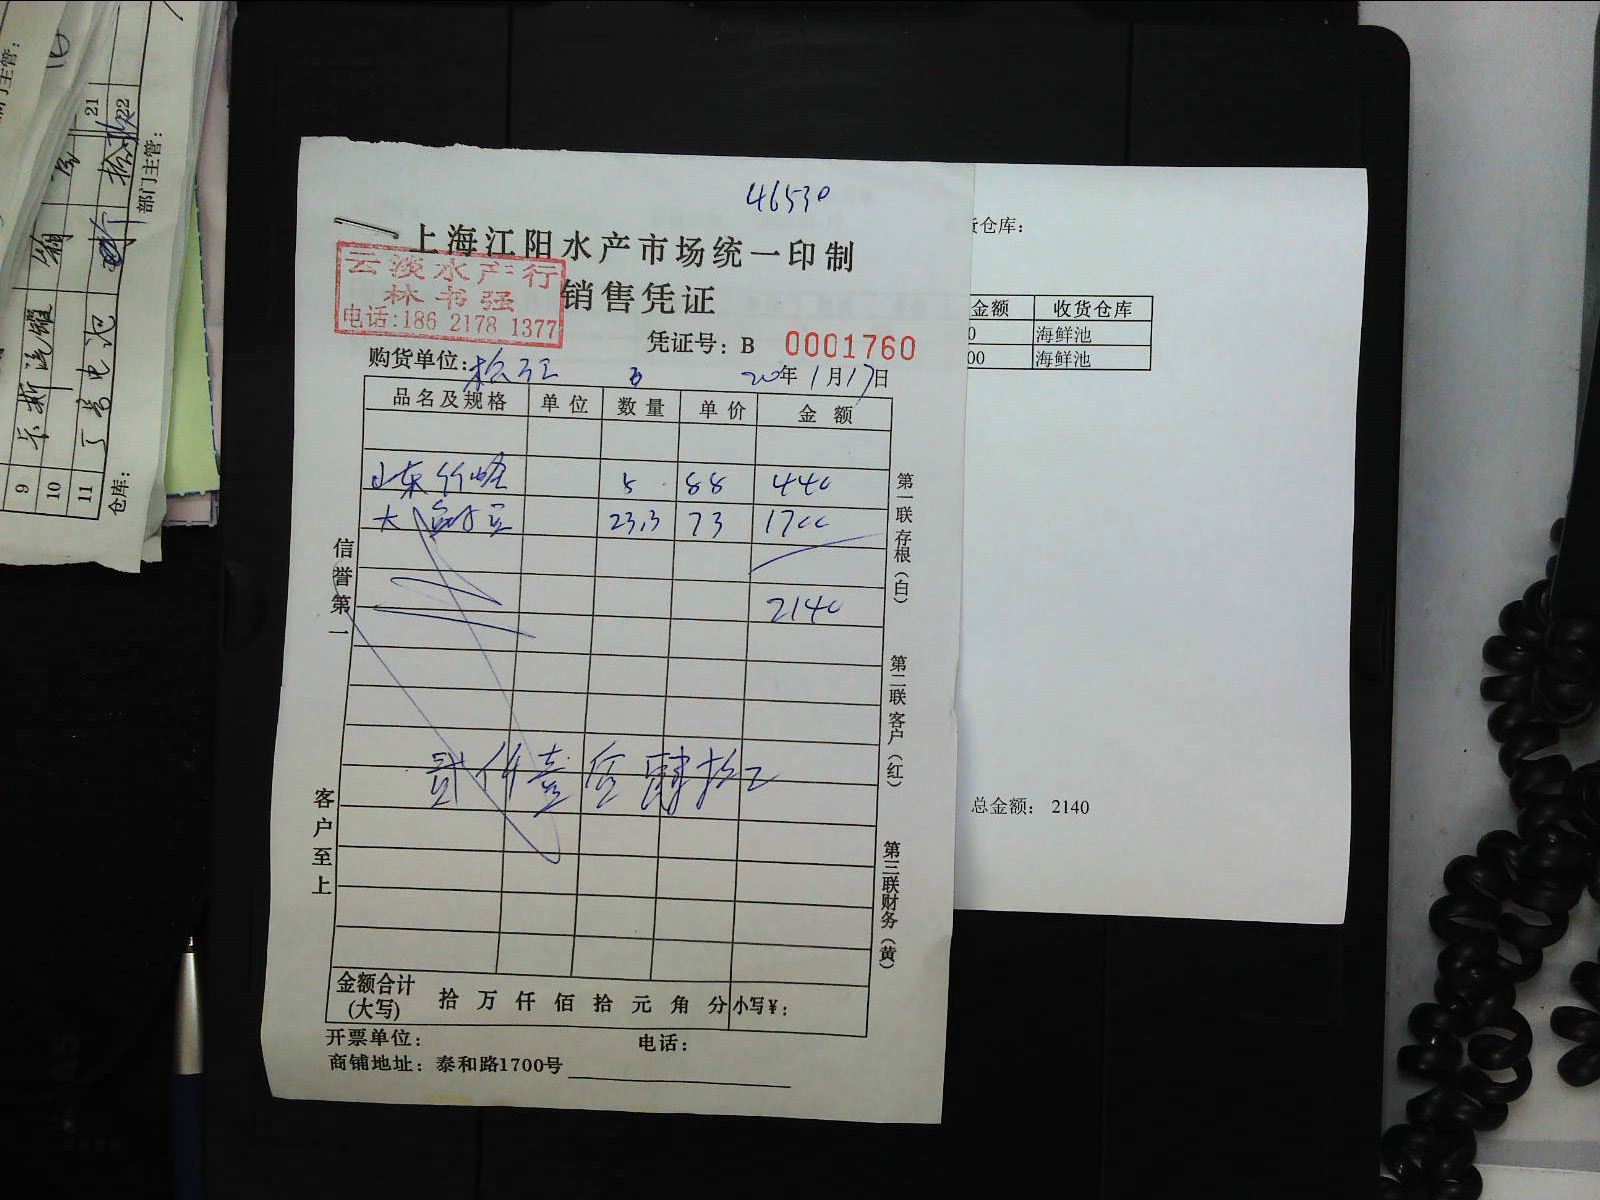 46530
上海江阳水产市场统一印制
销售凭证
云淡水产行
林书强
电话:186 2178 1377
凭证号：B 0001760
购货单位:
20年1月17日
品名及规格 单位 数量 单价 金额
山东竹蛏 5 88 440
大 23.3 73 1700
2140
贰仟壹佰肆拾元
信誉第一
客户至上
第一联存根（白）
第二联客户（红）
第三联财务（黄）
金额合计(大写) 拾万仟佰拾元角分 小写¥：
开票单位： 电话：
商铺地址：泰和路1700号
货仓库：
金额 收货仓库
0 海鲜池
00 海鲜池
总金额： 2140
21
22
部门主管：
9
10
11 丁号电池
仓库：